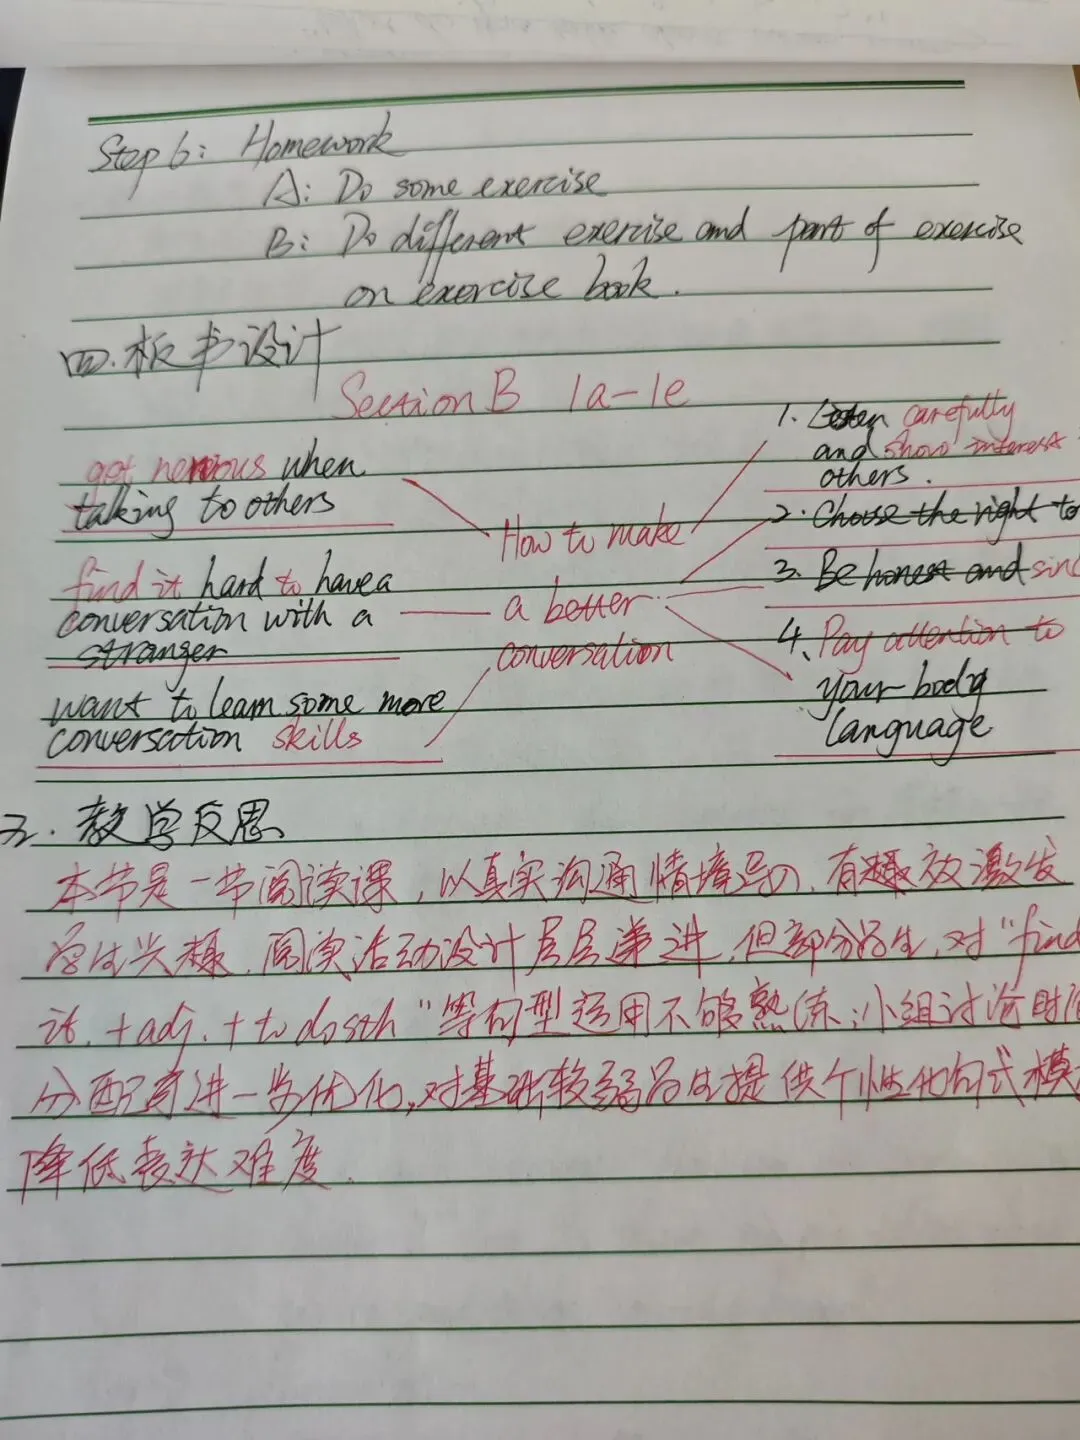 Step 6: Homework
A: Do some exercise
B: Do different exercise and part of exercise
on exercise book.
四.板书设计
Section B 1a-1e
get nervous when
talking to others
find it hard to have a
conversation with a
stranger
want to learn some more
conversation skills
How to make
a better
conversation
1. Listen carefully
and show interest
others.
2. Choose the right to
3. Be honest and sinc
4、Pay attention to
your body
language
五.教学反思
本节是一节阅读课,以真实沟通情境导入,有效激发
学生兴趣.阅读活动设计层层递进,但部分学生,对"find
it.+adj.+to do sth"等句型运用不够熟练;小组讨论时间
分配可进一步优化,对基础较弱学生提供个性化句式模
降低表达难度.